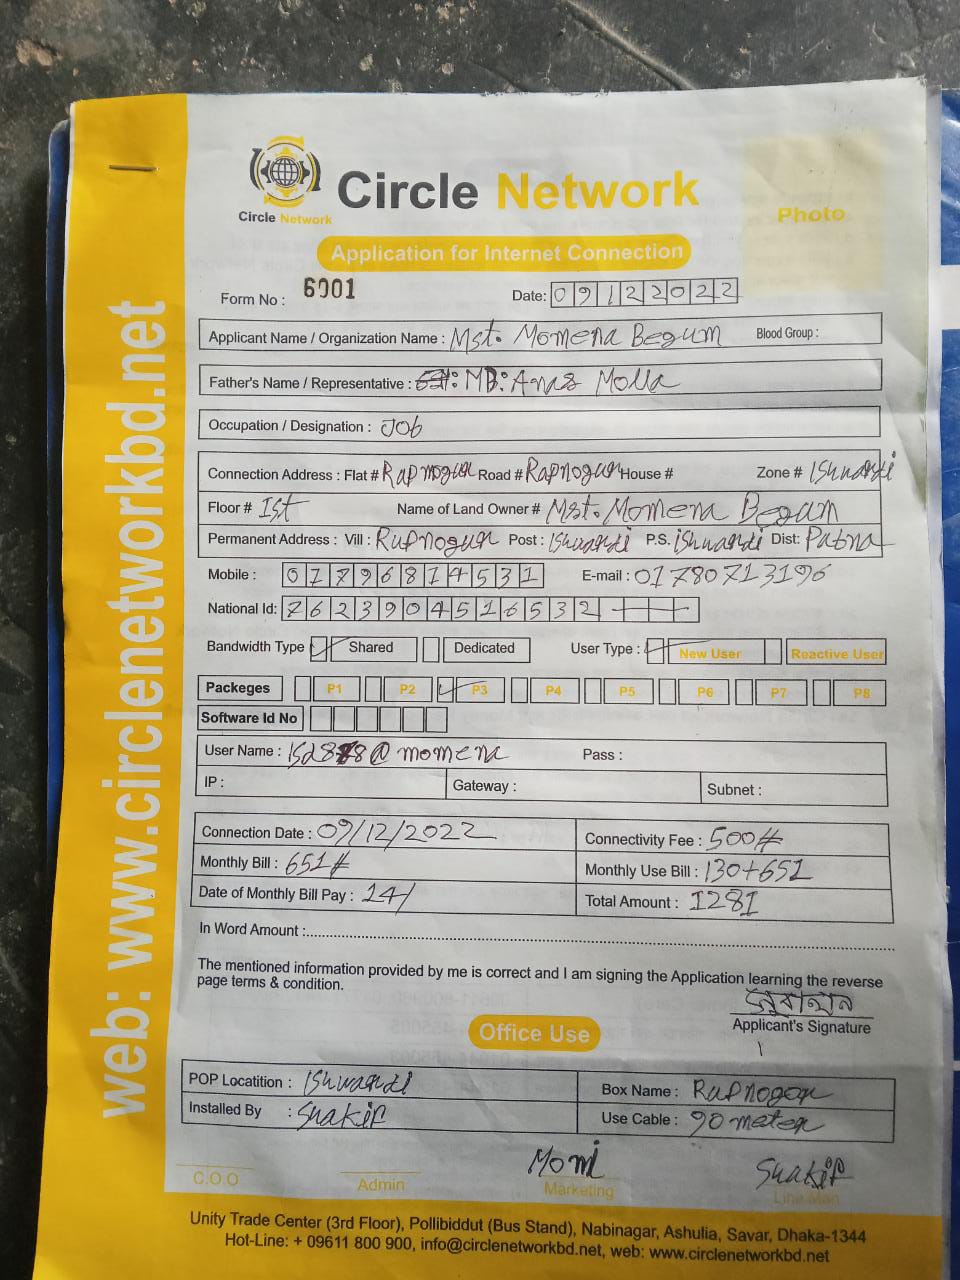 Circle Network
Circle Network
Photo
Application for Internet Connection
Form No : 6001
Date: 09122022
Applicant Name / Organization Name : Mst. Momena Begum Blood Group :
Father's Name / Representative : MD: Anas Molla
Occupation / Designation : Job
Connection Address : Flat # Rupnogur Road # Rupnogur House # Zone # Ishwardi
Floor # Ist Name of Land Owner # Mst. Momena Begum
Permanent Address : Vill : Rupnogur Post : Ishwardi P.S. ishwardi Dist: Pabna
Mobile : 01796814531 E-mail : 01780713196
National Id: 7623904516532
Bandwidth Type Shared Dedicated User Type : New User Reactive User
Packeges P1 P2 P3 P4 P5 P6 P7 P8
Software Id No
User Name : @momena Pass :
IP : Gateway : Subnet :
Connection Date : 09/12/2022 Connectivity Fee : 500#
Monthly Bill : 651# Monthly Use Bill : 130+651
Date of Monthly Bill Pay : 14/ Total Amount : 1281
In Word Amount :
The mentioned information provided by me is correct and I am signing the Application learning the reverse
page terms & condition.
Applicant's Signature
Office Use
POP Locatition : Ishwardi Box Name : Rupnogor
Installed By : Shakif Use Cable : 90 meter
Momi Shakif
C.O.O Admin Marketing Line Man
Unity Trade Center (3rd Floor), Pollibiddut (Bus Stand), Nabinagar, Ashulia, Savar, Dhaka-1344
Hot-Line: + 09611 800 900, info@circlenetworkbd.net, web: www.circlenetworkbd.net
web: www.circlenetworkbd.net